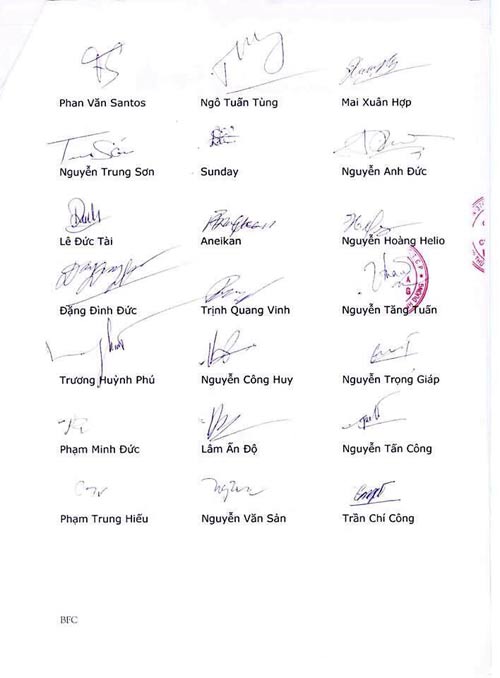 Phan Văn Santos Ngô Tuấn Tùng Mai Xuân Hợp
Nguyễn Trung Sơn Sunday Nguyễn Anh Đức
Lê Đức Tài Aneikan Nguyễn Hoàng Helio
Đặng Đình Đức Trịnh Quang Vinh Nguyễn Tăng Tuấn
Trương Huỳnh Phú Nguyễn Công Huy Nguyễn Trọng Giáp
Phạm Minh Đức Lâm Ấn Độ Nguyễn Tấn Công
Phạm Trung Hiếu Nguyễn Văn Sản Trần Chí Công
BFC